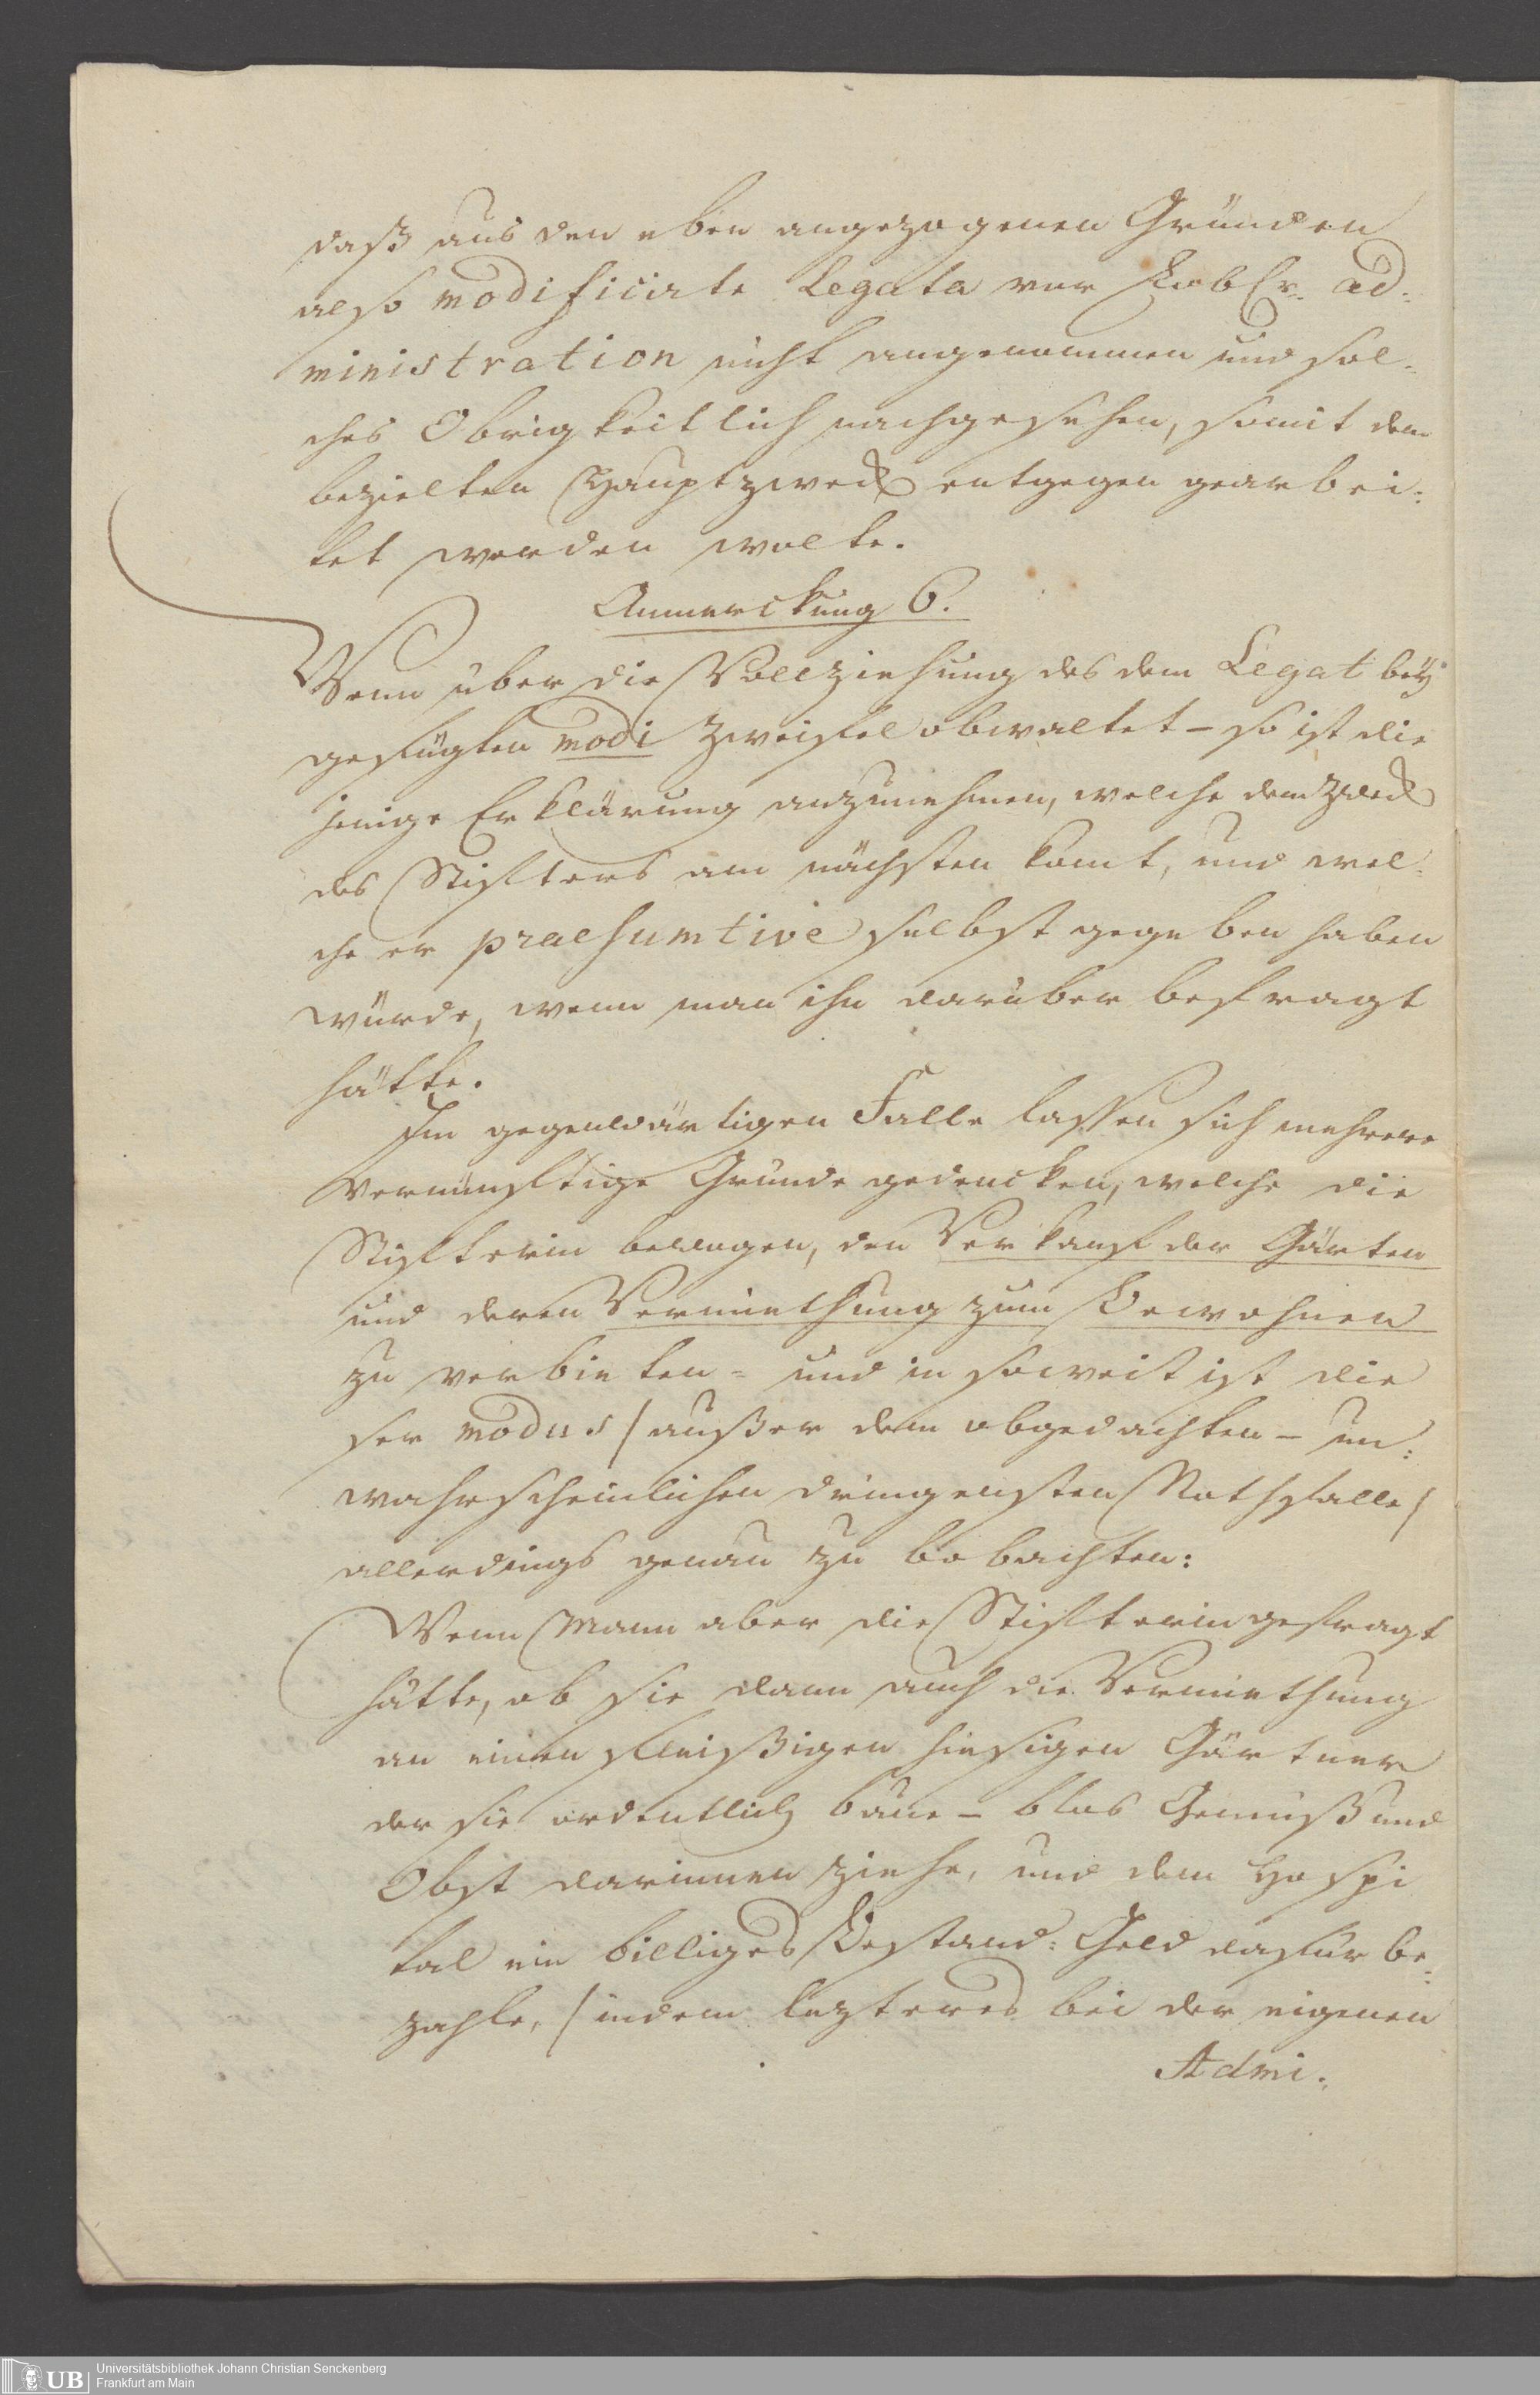 daß aus den eben angezogenen Gründen
also modificirte Legata von ad:
ministration nicht angenommen und sol-
ches Obrigkeitlich nachgesehen, somit dem
bezielten Hauptzweck entgegen gearbei:
tet werden wolte.
Anmerckung 6.
Wenn über die Vollziehung des dem Legat bey
gefügten modi Zweifel obwaltet - so ist die
jenige Erklärung anzunehmen, welche dem Zweck
des Stifters am nächsten komt, und wel-
che er praesumtive selbst gegeben haben
würde, wenn man ihn darüber befragt
hätte.
Im gegenwärtigen Falle lassen sich mehrere
vernünftige Gründe gedencken, welche die
Stifterin bewogen, den Verkauf der Gärten
und deren Vermiethung zum Bewohnen
zu verbieten - und in soweit ist die
ser modus / außer dem obgedachten - un:
wahrscheinlichen dringensten Nothfalle /
allerdings genau zu bobachten:
Wenn Mann aber die Stifterin gefragt
hätte, ob sie dann auch die Vermiethung
an einen fleißigen hiesigen Gärtner
der sie ordentlich baue - blos Gemüß und
Obst darinnen ziehe, und dem Hospi
tal ein billiges Bestand: Geld dafür be:
zahle, / indem lezteres bei der eigenen
Admi:
UB
Universitätsbibliothek Johann Christian Senckenberg
Frankfurt am Main